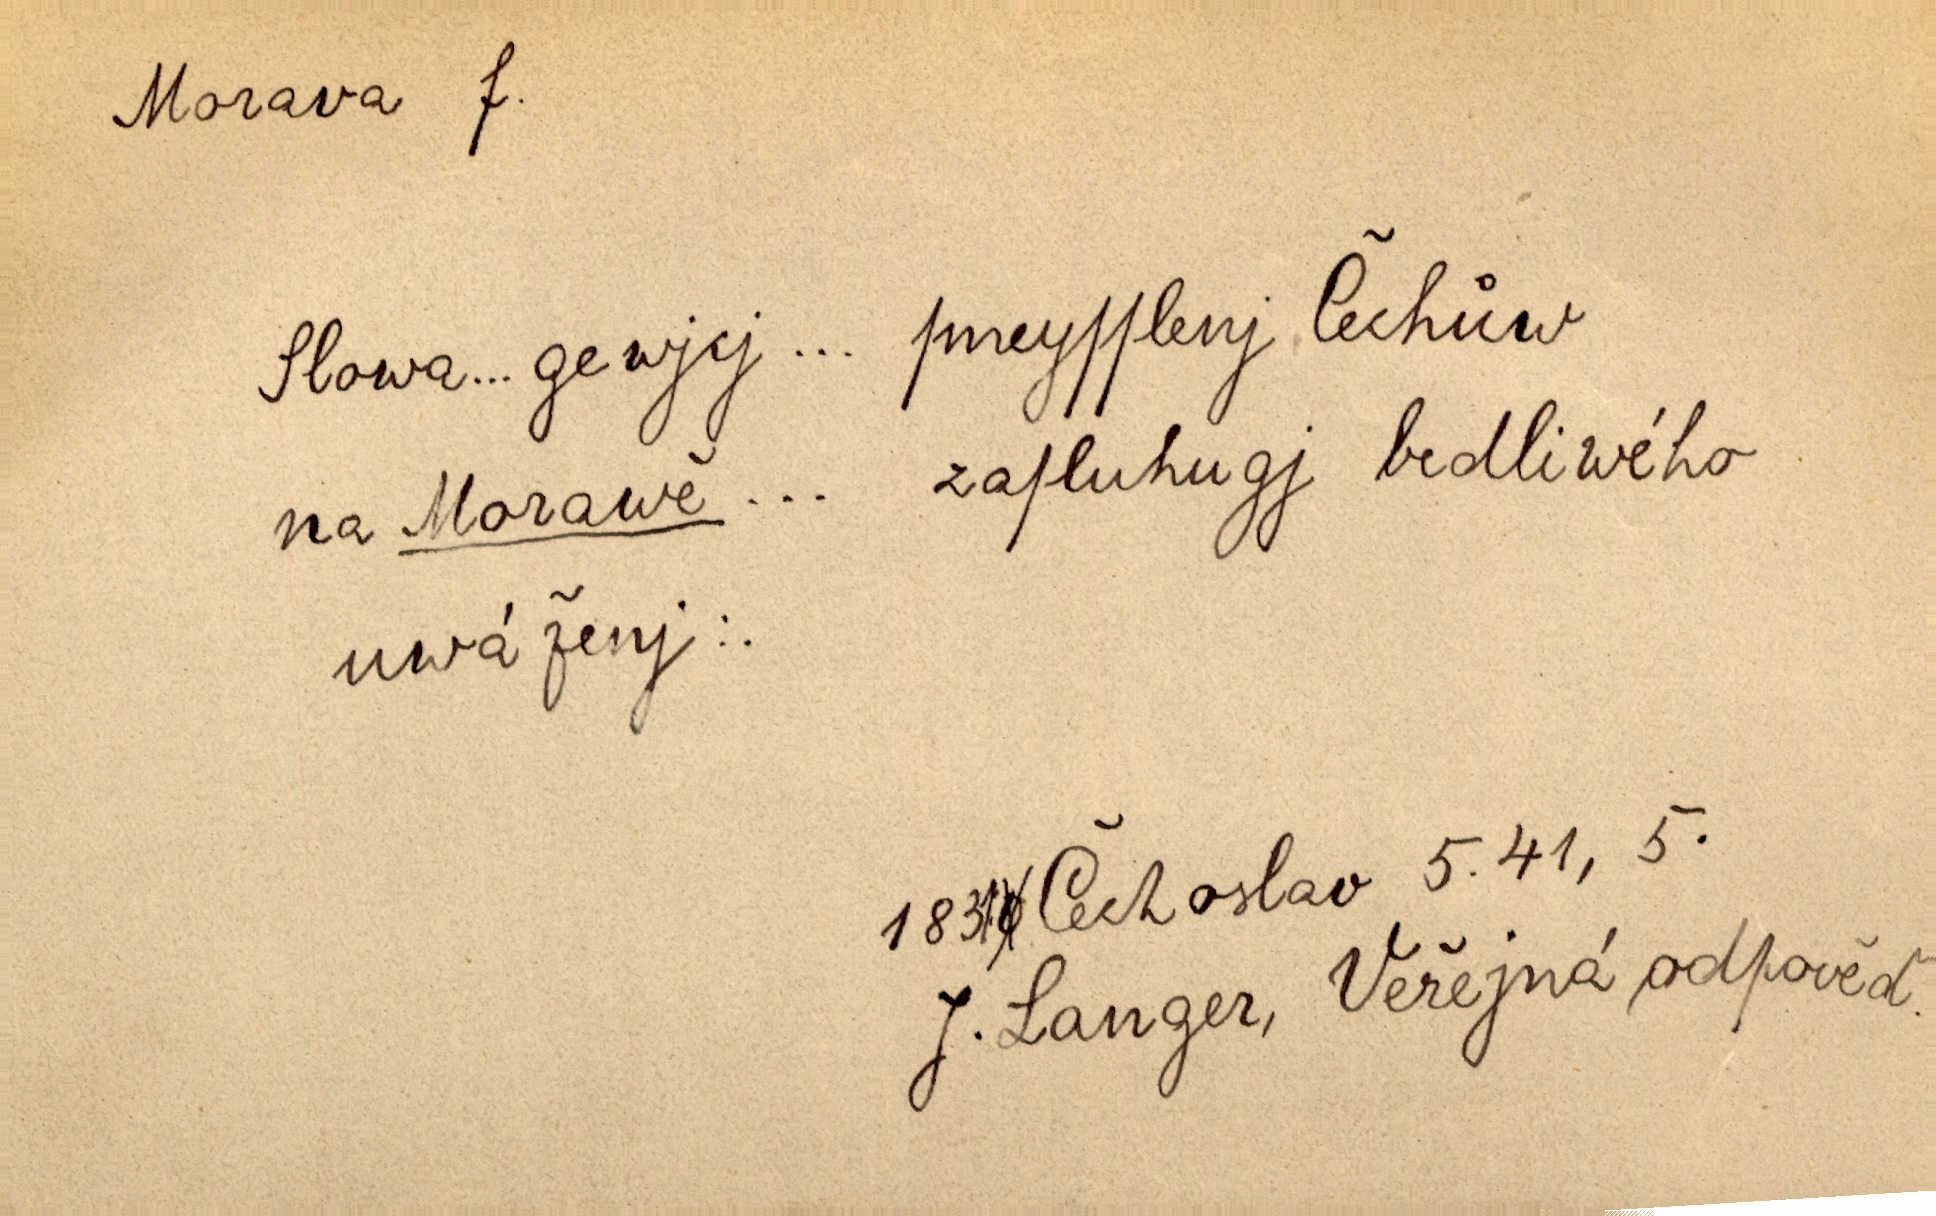 Morava f.
Slowa... gewjcj ... ſmeyſſlenj Čechůw
na Morawě ... zaſluhugj bedliwého
uwáženj :.
1831 Čechoslav 5. 41, 5.
J. Langer, Veřejná odpověď.